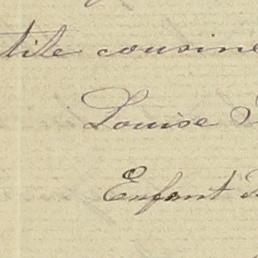 tite cousine
Louise
Enfant